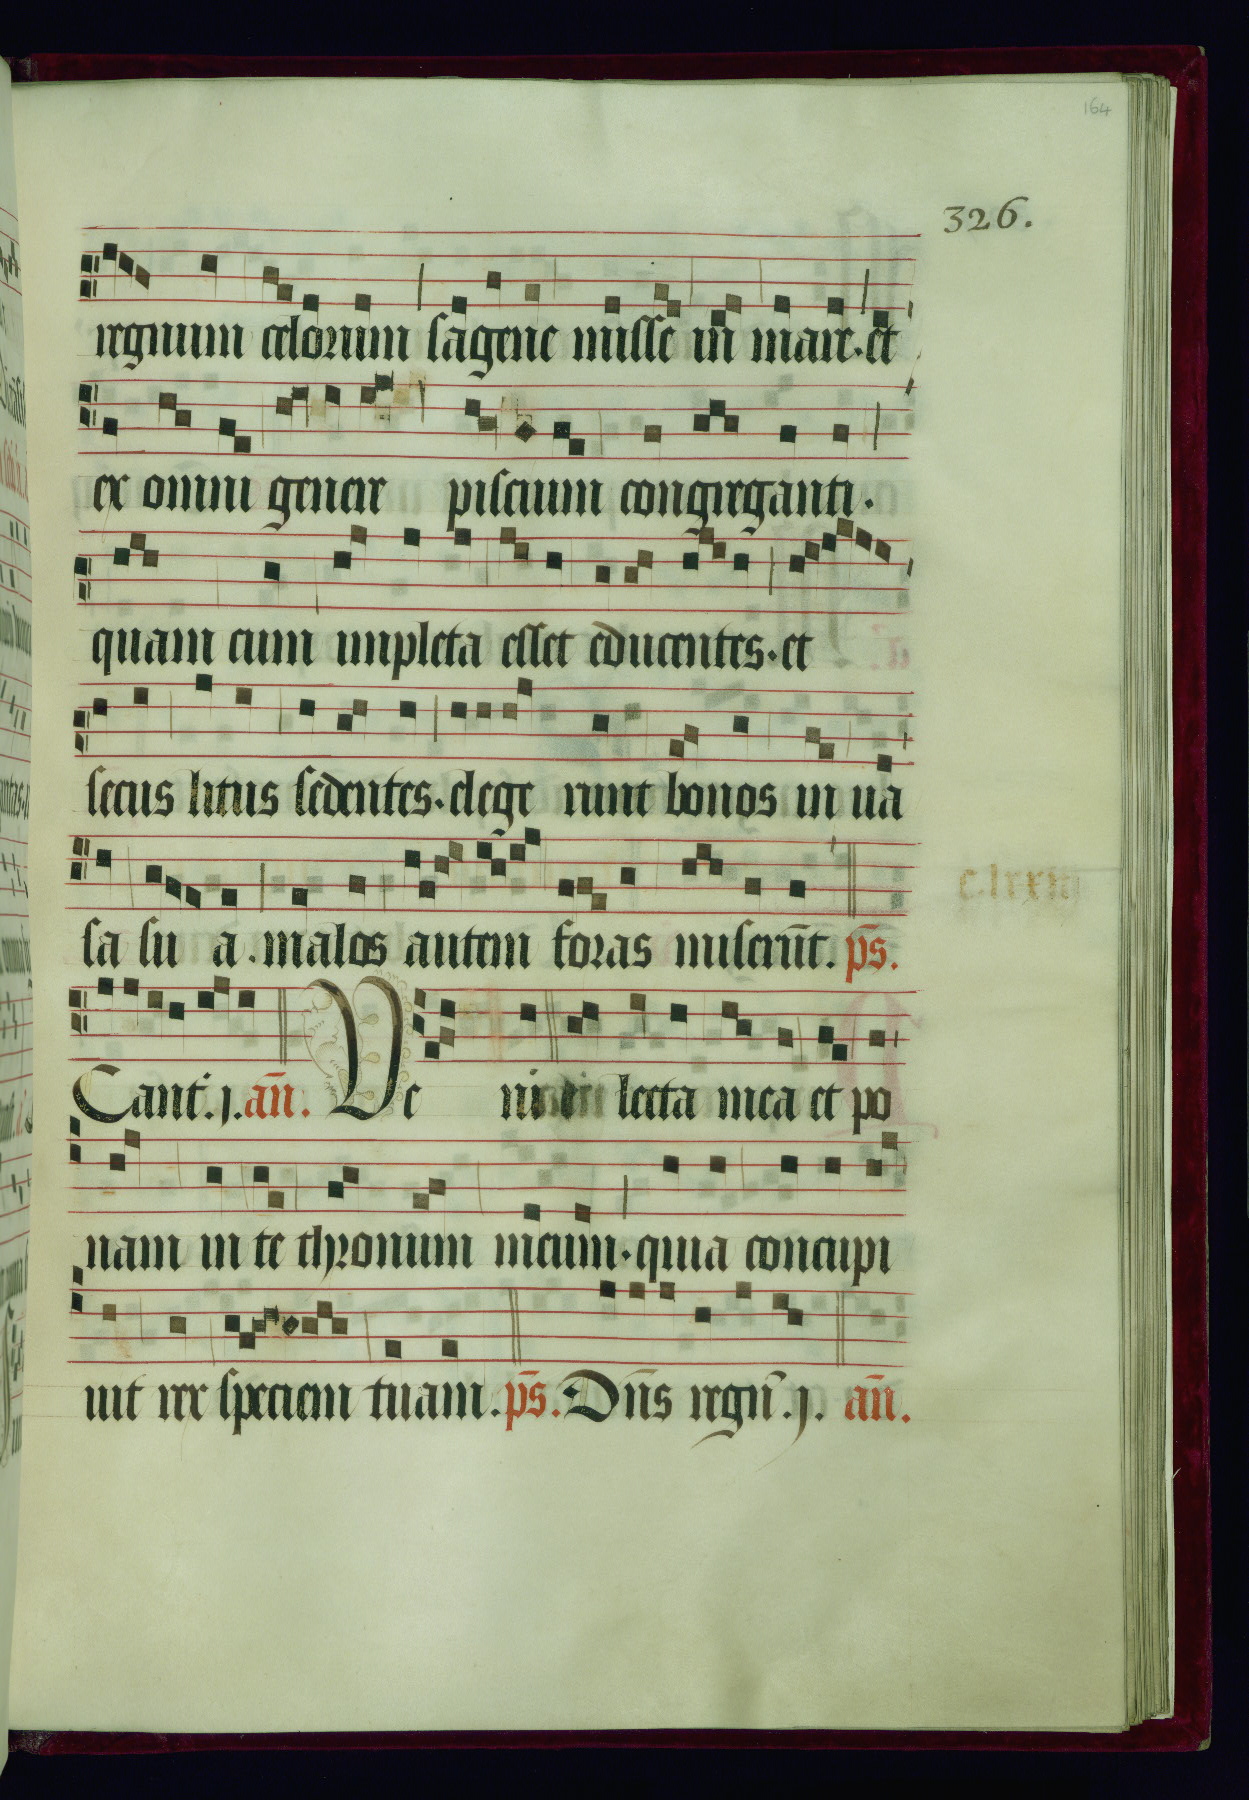 164
326.
regnum celorum sagene misse in mare. et
ex omni genere piscium congreganti.
quam cum impleta esset educentes. et
secus litus sedentes. elege runt bonos in ua
sa su a. malos autem foras miserūt. p̄s.
c.lxxiii
Cant. j. an̄. Ve ni e lecta mea et po
nam in te thronum meum. quia concupi
uit rex speciem tuam. p̄s. Dn̄s regn̄. j. an̄.